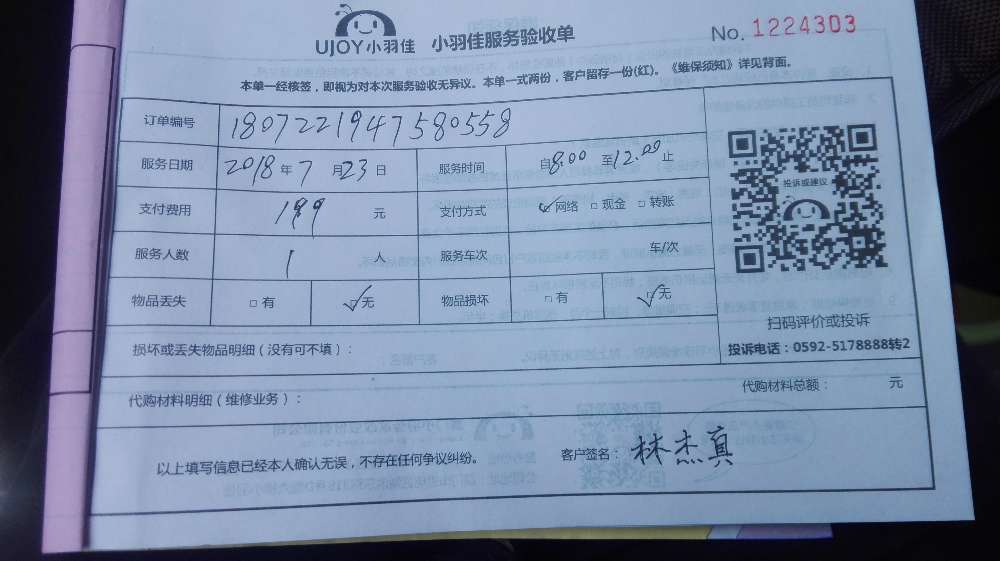 UJOY小羽佳 小羽佳服务验收单 No. 1224303
本单一经核签，即视为对本次服务验收无异议。本单一式两份，客户留存一份(红)。《维保须知》详见背面。
订单编号 1807221947580558
服务日期 2018年7月23日 服务时间 自8:00至12:00止
支付费用 199元 支付方式 ☑网络 □现金 □转账
服务人数 1人 服务车次 车/次
物品丢失 □有 ☑无 物品损坏 □有 ☑无
投诉或建议
扫码评价或投诉
投诉电话：0592-5178888转2
损坏或丢失物品明细（没有可不填）：
代购材料明细（维修业务）： 代购材料总额： 元
以上填写信息已经本人确认无误，不存在任何争议纠纷。 客户签名：林杰真